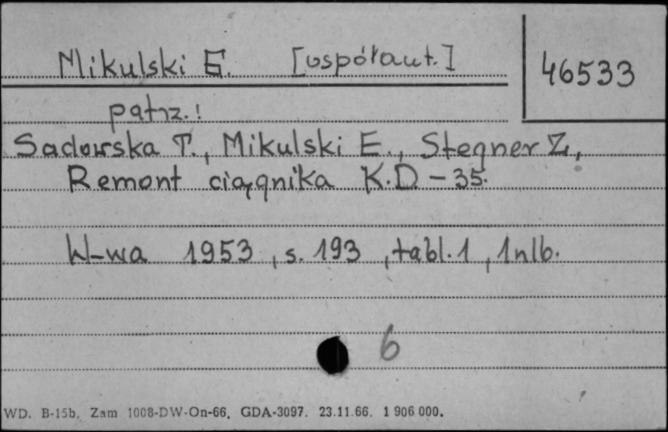 Mikulski E. [współaut.]
46533
patrz.!
Sadowska T., Mikulski E., Stegner Z,
Remont ciągnika K.D - 35.
W-wa 1953, s. 193, tabl. 1, 1nlb.
6
WD. B-15b. Zam 1008-DW-On-66. GDA-3097. 23.11.66. 1 906 000.